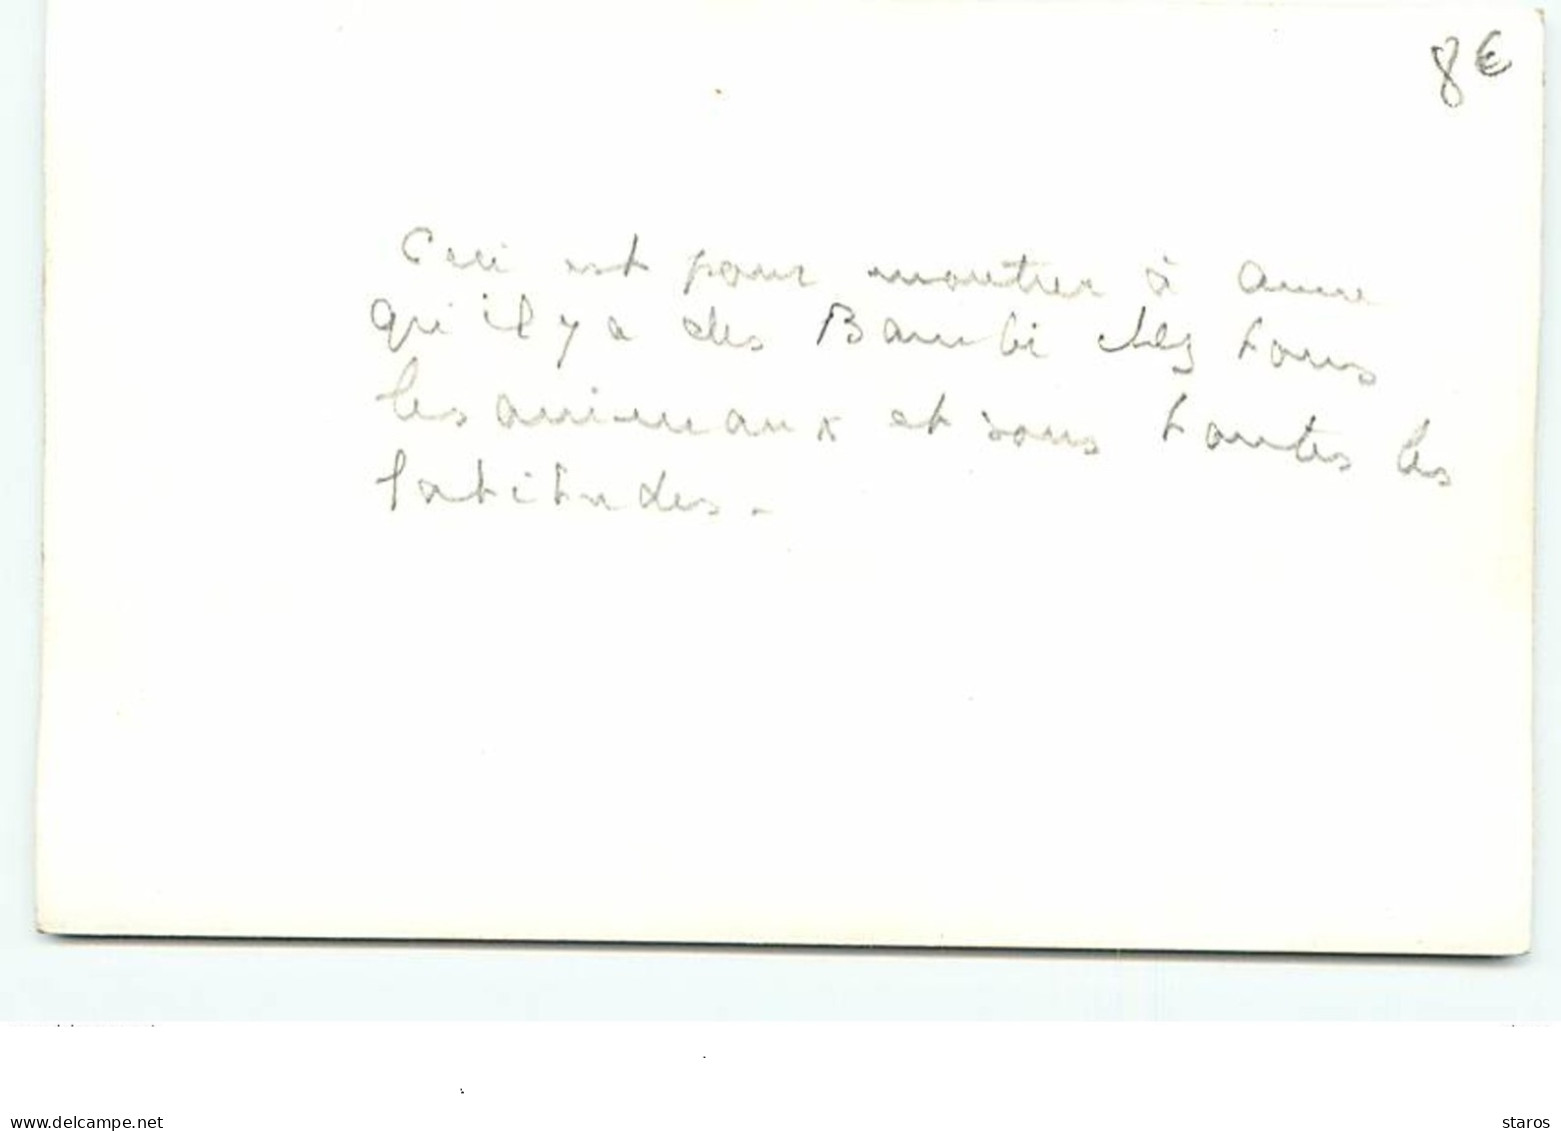 8€
Ceci est pour montrer à Anne
qu'il y a des Bambi chez tous
les animaux et sous toutes les
latitudes.
www.delcampe.net
staros